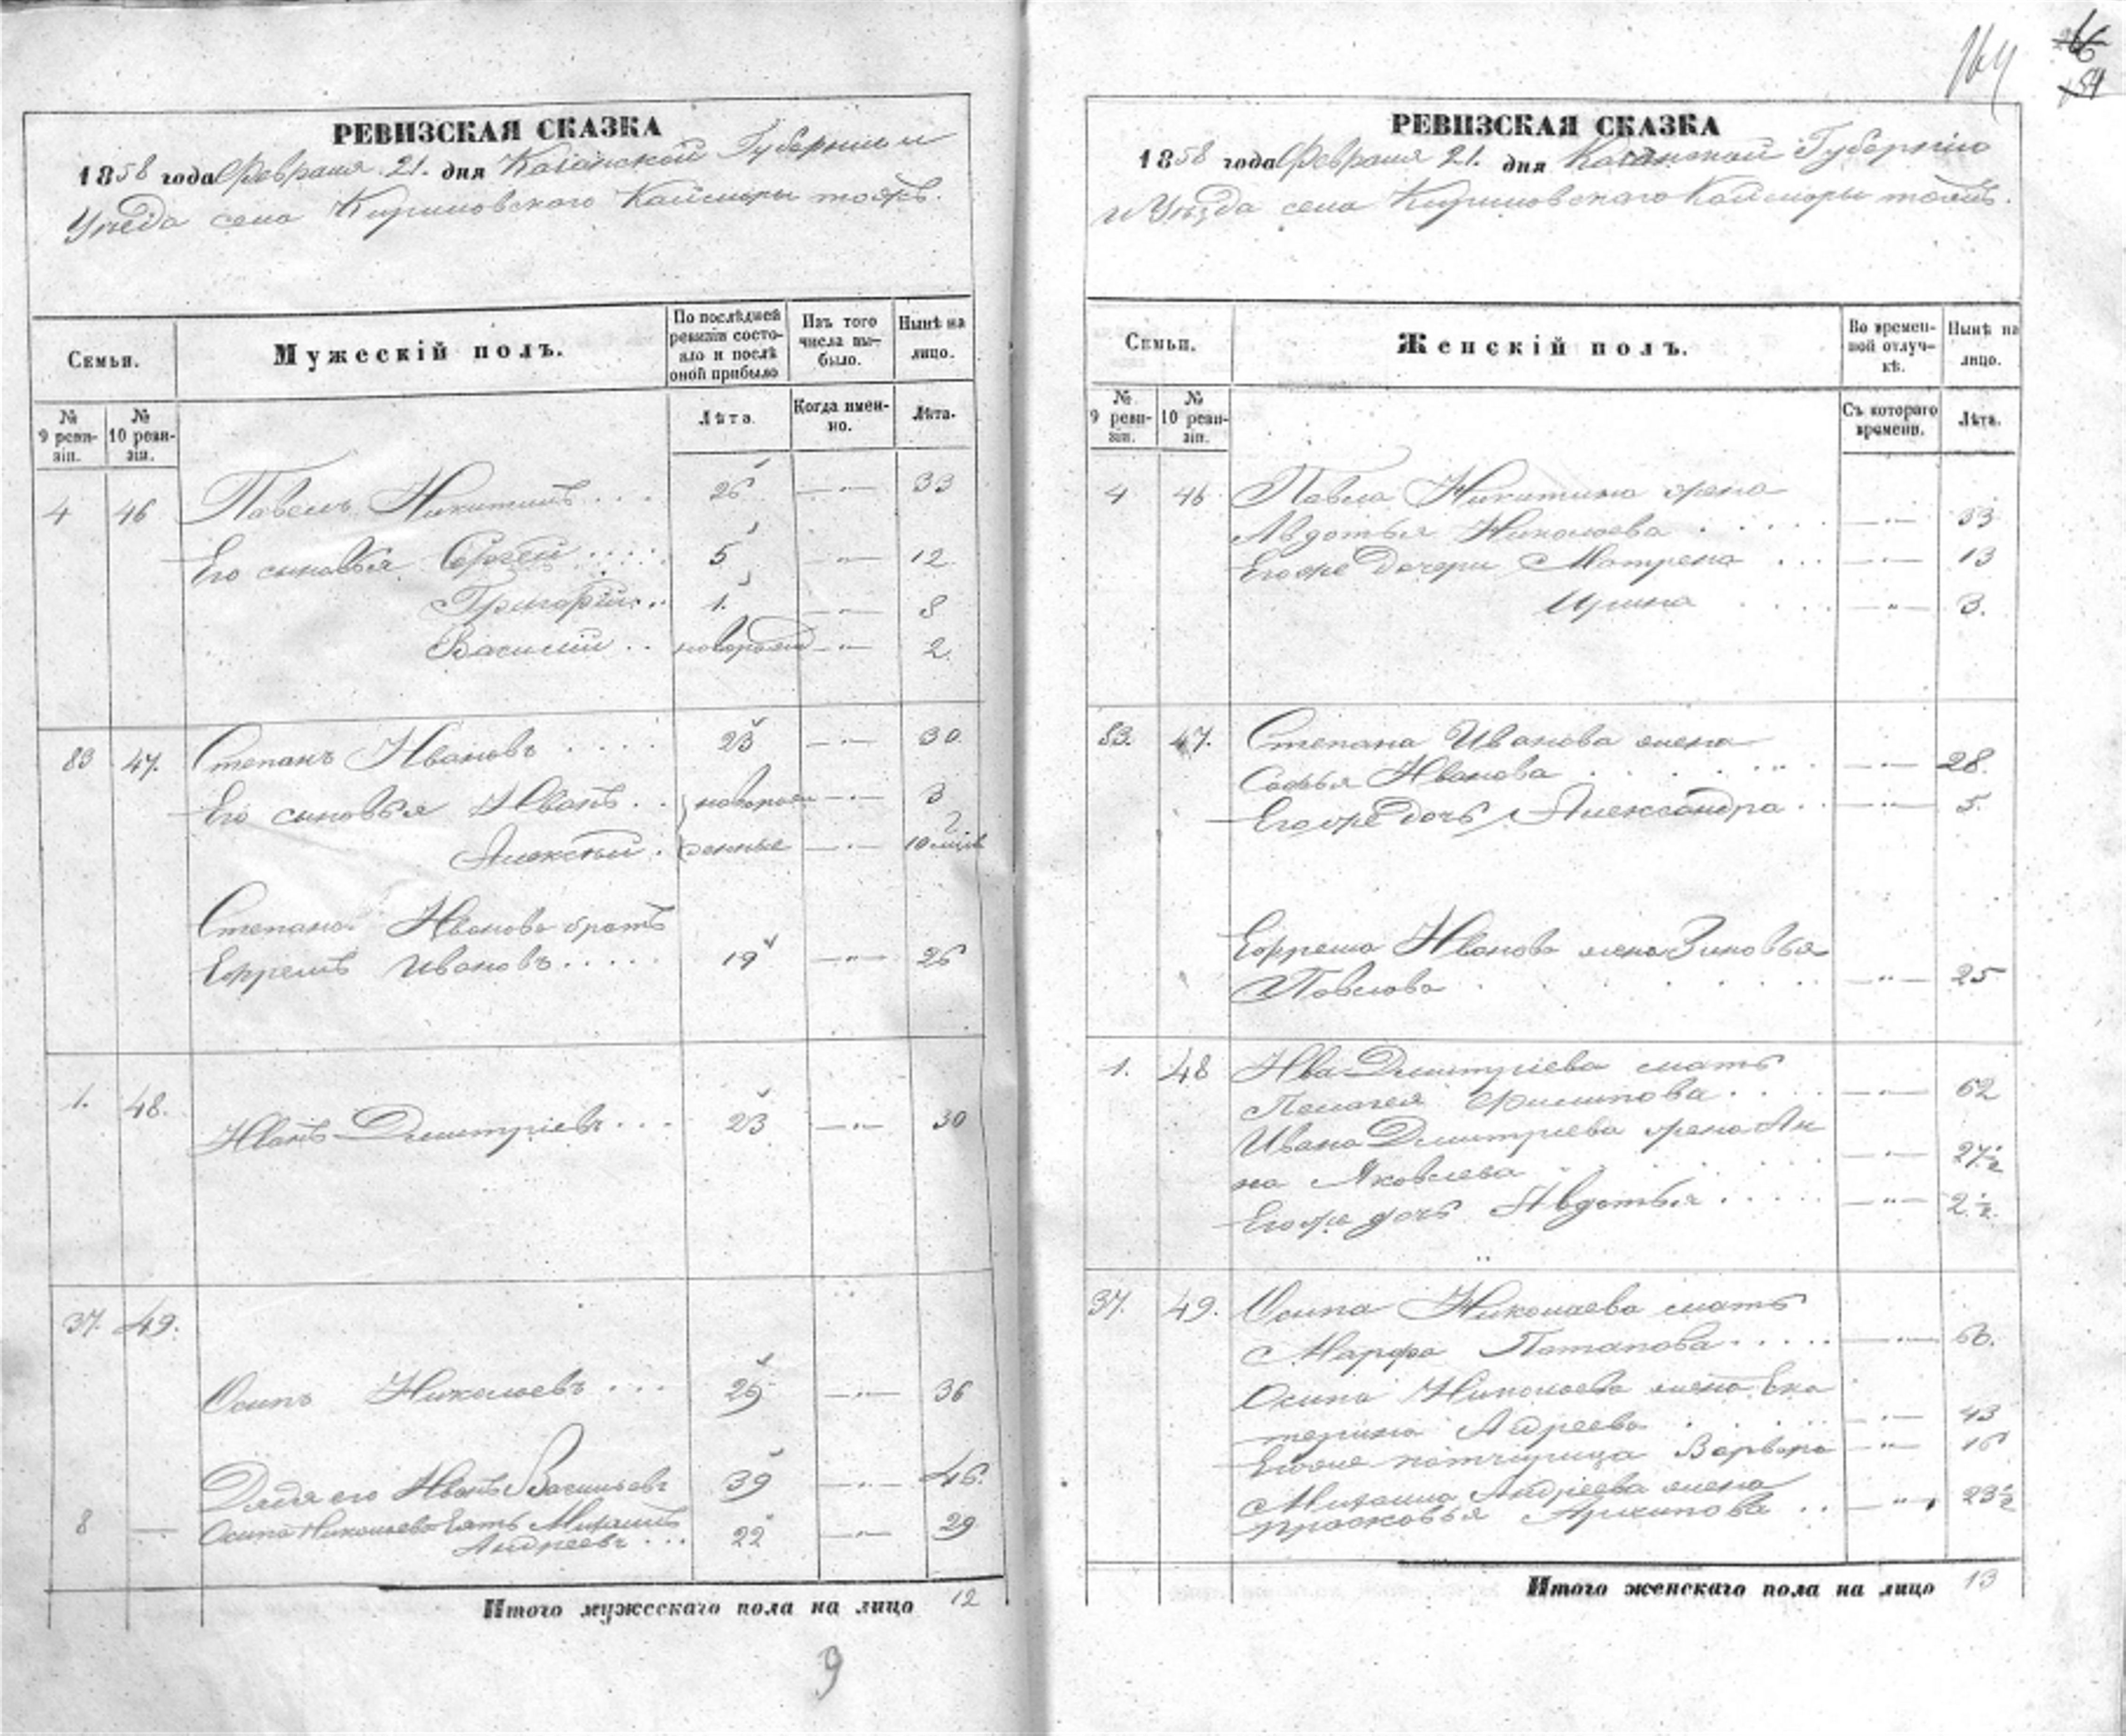 164
154
РЕВИЗСКАЯ СКАЗКА
1858 года Февраля 21. дня Казанской Губернии и
Уезда села Кириловского Каймары тожъ.
Семьи.
Мужескій полъ.
По послѣдней ревизіи состояло и послѣ оной прибыло
Изъ того числа выбыло.
Нынѣ на лицо.
№ 9 ревизіи.
№ 10 ревизіи.
Лѣта.
Когда именно.
Лѣта.
4 46 Павелъ Никитинъ . . . 26 —"— 33
Его сыновья Сергей . . . . 5 —"— 12
Григорій . . 1. —"— 8
Василій . . новорожд —"— 2
83 47. Степанъ Ивановъ . . . . 23 —"— 30.
Его сыновья Иванъ . . новорож —"— 3
Алексѣй . денные —"— 10 мцвъ
Степана Иванова братъ
Ефремъ Ивановъ . . . . . 19 —"— 26
1. 48. Иванъ Дмитріевъ . . . 23 —"— 30
37. 49.
Осипъ Николаевъ . . . 29 —"— 36
Дядя его Иванъ Васильевъ 39 —"— 46.
8 — Осипа Николаева зять Михаилъ
Андреевъ . . . 22 —"— 29
Итого мужескаго пола на лицо 12
9
РЕВИЗСКАЯ СКАЗКА
1858 года Февраля 21. дня Казанской Губерніи
и Уѣзда села Кириловского Каймары тожъ.
Семьи.
Женскій полъ.
Во временной отлучкѣ.
Нынѣ на лицо.
№ 9 ревизіи.
№ 10 ревизіи.
Съ котораго времени.
Лѣта.
4 46 Павла Никитина жена
Авдотья Николаева . . . . . —"— 33
Егоже дочери Матрена . . . —"— 13
Ирина . . . . —"— 3.
83. 47. Степана Иванова жена
Софья Иванова . . . . . —"— 28.
Егоже дочь Александра . . —"— 5.
Ефрема Иванова жена Зиновья
Павлова . . . . . —"— 25
1. 48 Ива Дмитріева мать
Пелагея Филипова . . . —"— 62
Ивана Дмитриева жена Ан
на Яковлева . . . . . —"— 27 1/2
Егоже дочь Авдотья . . . . . —"— 2 1/2.
37. 49. Осипа Николаева мать
Марфа Потапова . . . . . —"— 60.
Осипа Николаева жена Ека
терина Андреева . . . . —"— 43
Егоже патчирица Варвара —"— 16
Михаила Андреева жена
Прасковья Архипова . . —"— 23 1/2
Итого женскаго пола на лицо 13